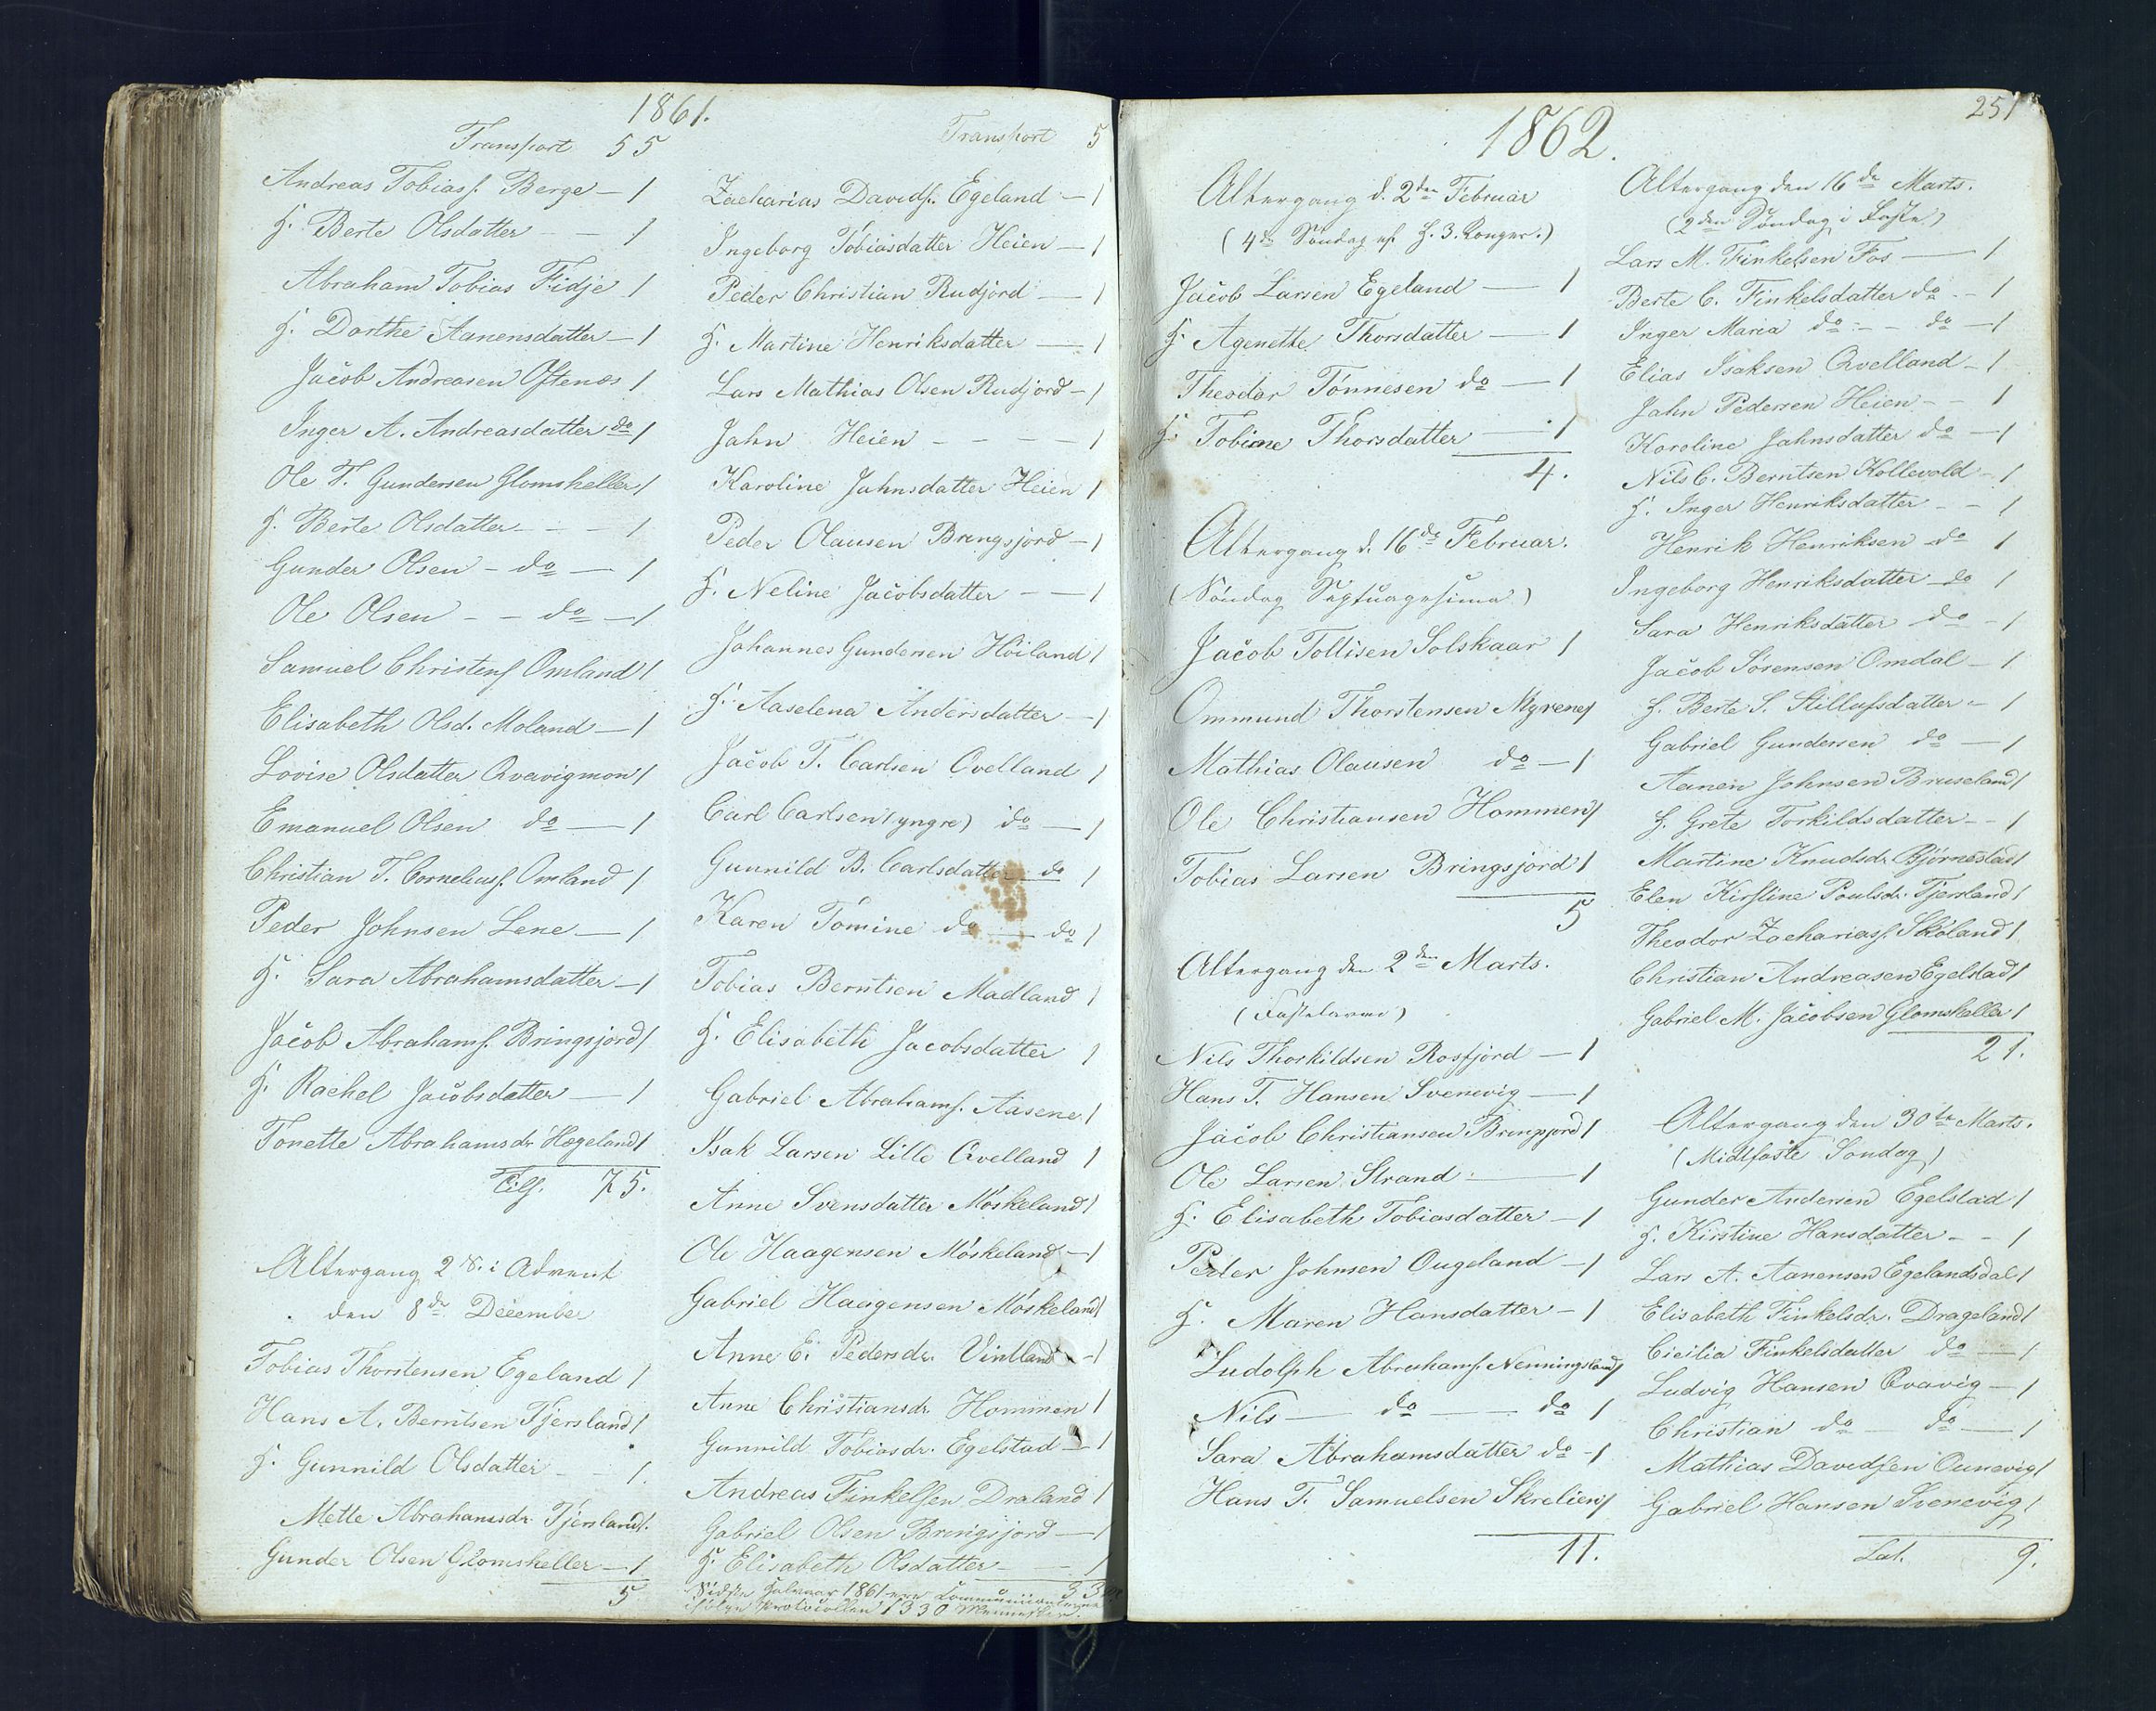 1861.
Transport 55
Andreas Tobiass. Berge – 1
H. Berte Olsdatter – – 1
Abraham Tobias Fidje 1
H. Dorthe Aanensdatter – 1
Jacob Andreasen Oftenæs 1
Inger A. Andreasdatter do 1
Ole T. Gundersen Glomsheller 1
H. Berte Olsdatter – – 1
Gunder Olsen – do – 1
Ole Olsen – – do – 1
Samuel Christens. Omland 1
Elisabeth Olsd. Moland – 1
Lovise Olsdatter Qvavigmon 1
Emanuel Olsen do – 1
Christian T. Cornelius. Omland 1
Peder Johnsen Lene – 1
H. Sara Abrahamsdatter – 1
Jacob Abrahams. Bringsjord 1
H. Rachel Jacobsdatter – 1
Tonette Abrahamsdr. Hægeland 1
Tils. 75.
Altergang 2 S. i Advent
den 8de December
Tobias Thorstensen Egeland 1
Hans A. Berntsen Tjersland 1
H. Gunnild Olsdatter – – 1.
Mette Abrahamsdr. Tjersland 1.
Gunder Olsen Glomsheller – 1
5
Transport 5
Zacharias Davids. Egeland – 1
Ingeborg Tobiasdatter Heien – 1
Peder Christian Rudjord – 1
H. Martine Henriksdatter – 1
Lars Mathias Olsen Rudjord – 1
Jahn Heien – – – – 1
Karoline Jahnsdatter Heien 1
Peder Olausen Bringsjord – 1
H. Neline Jacobsdatter – – 1
Johannes Gundersen Höiland 1
H. Aaselena Andersdatter – 1
Jacob T. Carlsen Qvelland 1
Carl Carlsen (yngre) do – 1
Gunnild B. Carlsdatter do 1
Karen Tomine do – do 1
Tobias Berntsen Madland 1
H. Elisabeth Jacobsdatter 1
Gabriel Abrahams. Aasene 1
Isak Larsen Lille Qvelland 1
Anne Svensdatter Möskeland 1
Ole Haagensen Möskeland – 1
Gabriel Haagensen Möskeland 1
Anne E. Pedersdr. Vintland – 1
Anne Christiansdr. Hommen 1
Gunnild Tobiasdr. Egelstad – 1
Andreas Finkelsen Draland 1
Gabriel Olsen Bringsjord – 1
H. Elisabeth Olsdatter – 1
33
Sidste Februar 1861 ere Communicanterne
ifölge Protocollen 1330 Mennesker.
251
1862.
Altergang d. 2den Februar
(4de Söndag ef. H. 3. Konger.)
Jacob Larsen Egeland – 1
H. Agenette Thorsdatter – 1
Theodor Tönnesen do – 1
H. Tobine Thorsdatter – 1
4.
Altergang d. 16de Februar.
(Söndag Septuagesima)
Jacob Tollisen Solskaar 1
Ommund Thorstensen Myrene 1
Mathias Olausen do – 1
Ole Christiansen Hommen 1
Tobias Larsen Bringsjord 1
5
Altergang den 2den Marts.
(Fastelavn)
Nils Thorkildsen Rosfjord – 1
Hans T. Hansen Svenevig – 1
Jacob Christiansen Bringsjord 1
Ole Larsen Strand – 1
H. Elisabeth Tobiasdatter – 1
Peder Johnsen Ougeland – 1
H. Maren Hansdatter – 1
Ludolph Abrahams. Nenningsland 1
Nils – do – do 1
Sara Abrahamsdatter do – 1
Hans T. Samuelsen Skrelien 1
11.
Altergang den 16de Marts.
(2den Söndag i Faste)
Lars M. Finkelsen Fos – 1
Berte C. Finkelsdatter do – 1
Inger Maria do – – do – 1
Elias Isaksen Qvelland – 1
Jahn Pedersen Heien – – 1
Karoline Jahnsdatter do – 1
Nils C. Berntsen Kollevold – 1
H. Inger Henriksdatter – – 1
Henrik Henriksen do 1
Ingeborg Henriksdatter do 1
Sara Henriksdatter do – 1
Jacob Sörensen Omdal – 1
H. Berte S. Stillufsdatter – 1
Gabriel Gundersen do – 1
Aanen Johnsen Bruseland 1
H. Grete Torkildsdatter – – 1
Martine Knudsdr. Björnestad 1
Elen Kirstine Poulsdr. Tjersland 1
Theodor Zacharias. Sköland 1
Christian Andreasen Egelstad 1
Gabriel M. Jacobsen Glomsheller 1
21.
Altergang den 30te Marts.
(Midfaste Söndag)
Gunder Andersen Egelstad 1
H. Kirstine Hansdatter – – 1
Lars A. Aanensen Egelandsdal 1
Elisabeth Finkelsdr. Drageland 1
Cicilia Finkelsdatter do – 1
Ludvig Hansen Qvavig – 1
Christian do – do – 1
Mathias Davidsen Ounevig 1
Gabriel Hansen Svenevig 1
Lat. 9.